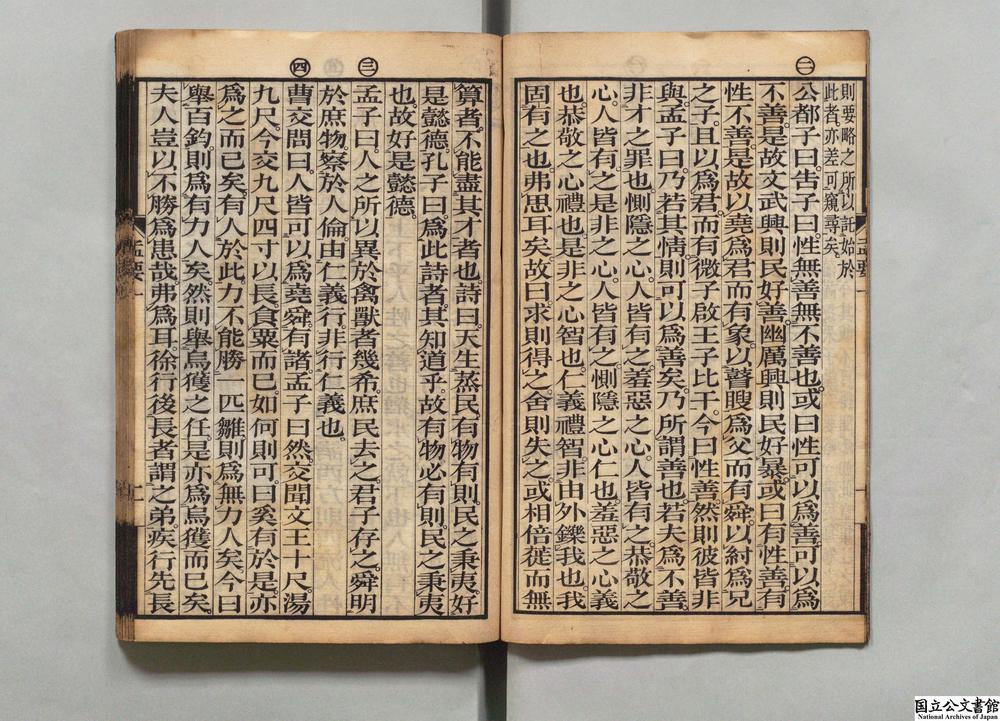 ㊀
則要略之所以託始於
此者亦差可窺尋矣
公都子曰告子曰性無善無不善也或曰性可以爲善可以爲
不善是故文武興則民好善幽厲興則民好暴或曰有性善有
性不善是故以堯爲君而有象以瞽瞍爲父而有舜以紂爲兄
之子且以爲君而有微子啟王子比干今曰性善然則彼皆非
與孟子曰乃若其情則可以爲善矣乃所謂善也若夫爲不善
非才之罪也惻隱之心人皆有之羞惡之心人皆有之恭敬之
心人皆有之是非之心人皆有之惻隱之心仁也羞惡之心義
也恭敬之心禮也是非之心智也仁義禮智非由外鑠我也我
固有之也弗思耳矣故曰求則得之舍則失之或相倍蓰而無
孟要
㊂
㊃
算者不能盡其才者也詩曰天生蒸民有物有則民之秉夷好
是懿德孔子曰爲此詩者其知道乎故有物必有則民之秉夷
也故好是懿德
孟子曰人之所以異於禽獸者幾希庶民去之君子存之舜明
於庶物察於人倫由仁義行非行仁義也
曹交問曰人皆可以爲堯舜有諸孟子曰然交聞文王十尺湯
九尺今交九尺四寸以長食粟而已如何則可曰奚有於是亦
爲之而已矣有人於此力不能勝一匹雛則爲無力人矣今曰
舉百鈞則爲有力人矣然則舉烏獲之任是亦爲烏獲而已矣
夫人豈以不勝爲患哉弗爲耳徐行後長者謂之弟疾行先長
孟要
国立公文書館
National Archives of Japan